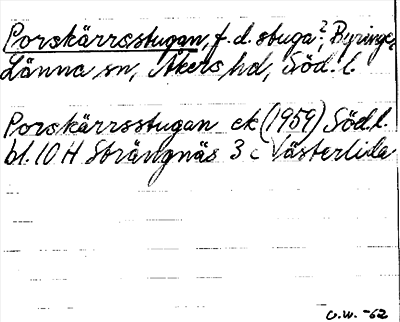 Porskärrsstugan, f.d. stuga?, Byringe,
Länna sn, Åkers hd, Söd. l.
Porskärrsstugan ek (1959) Söd. l.
bl. 10 H Strängnäs 3 c Västerlida
O.W. -62